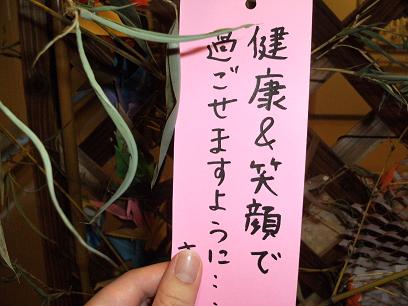 健康&笑顔で
過ごせますように…